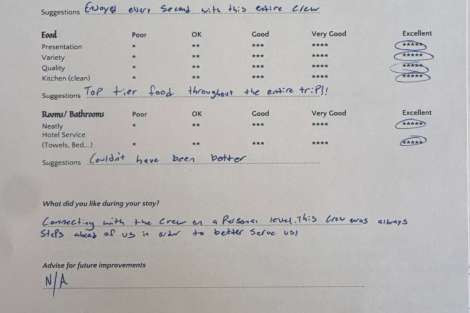 Suggestions Enjoyed every second with this entire crew
Food Poor OK Good Very Good Excellent
Presentation * ** *** **** *****
Variety * ** *** **** *****
Quality * ** *** **** *****
Kitchen (clean) * ** *** **** *****
Suggestions Top tier food throughout the entire trip!!
Rooms/ Bathrooms Poor OK Good Very Good Excellent
Neatly * ** *** **** *****
Hotel Service
(Towels, Bed...) * ** *** **** *****
Suggestions Couldn't have been better
What did you like during your stay?
Connecting with the crew on a Personal level. This crew was always
Steps ahead of us in order to better serve us!
Advise for future improvements
N/A